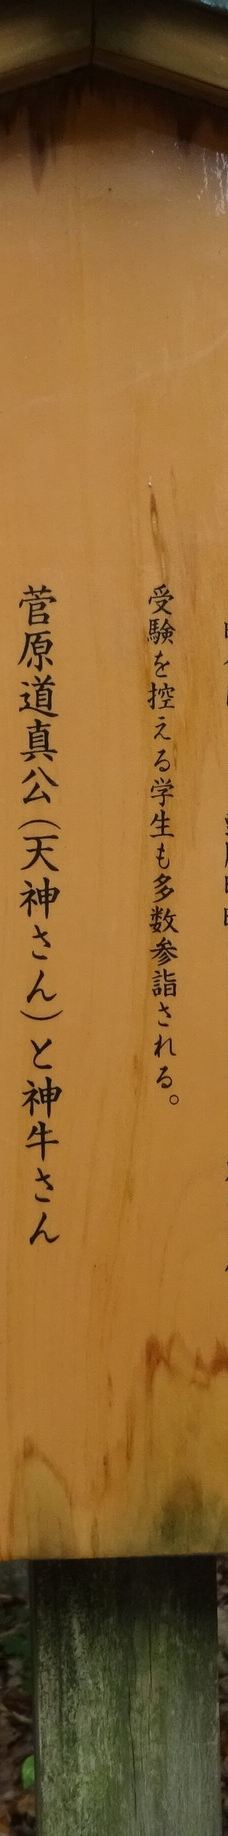 受験を控える学生も多数参詣される。
菅原道真公(天神さん)と神牛さん